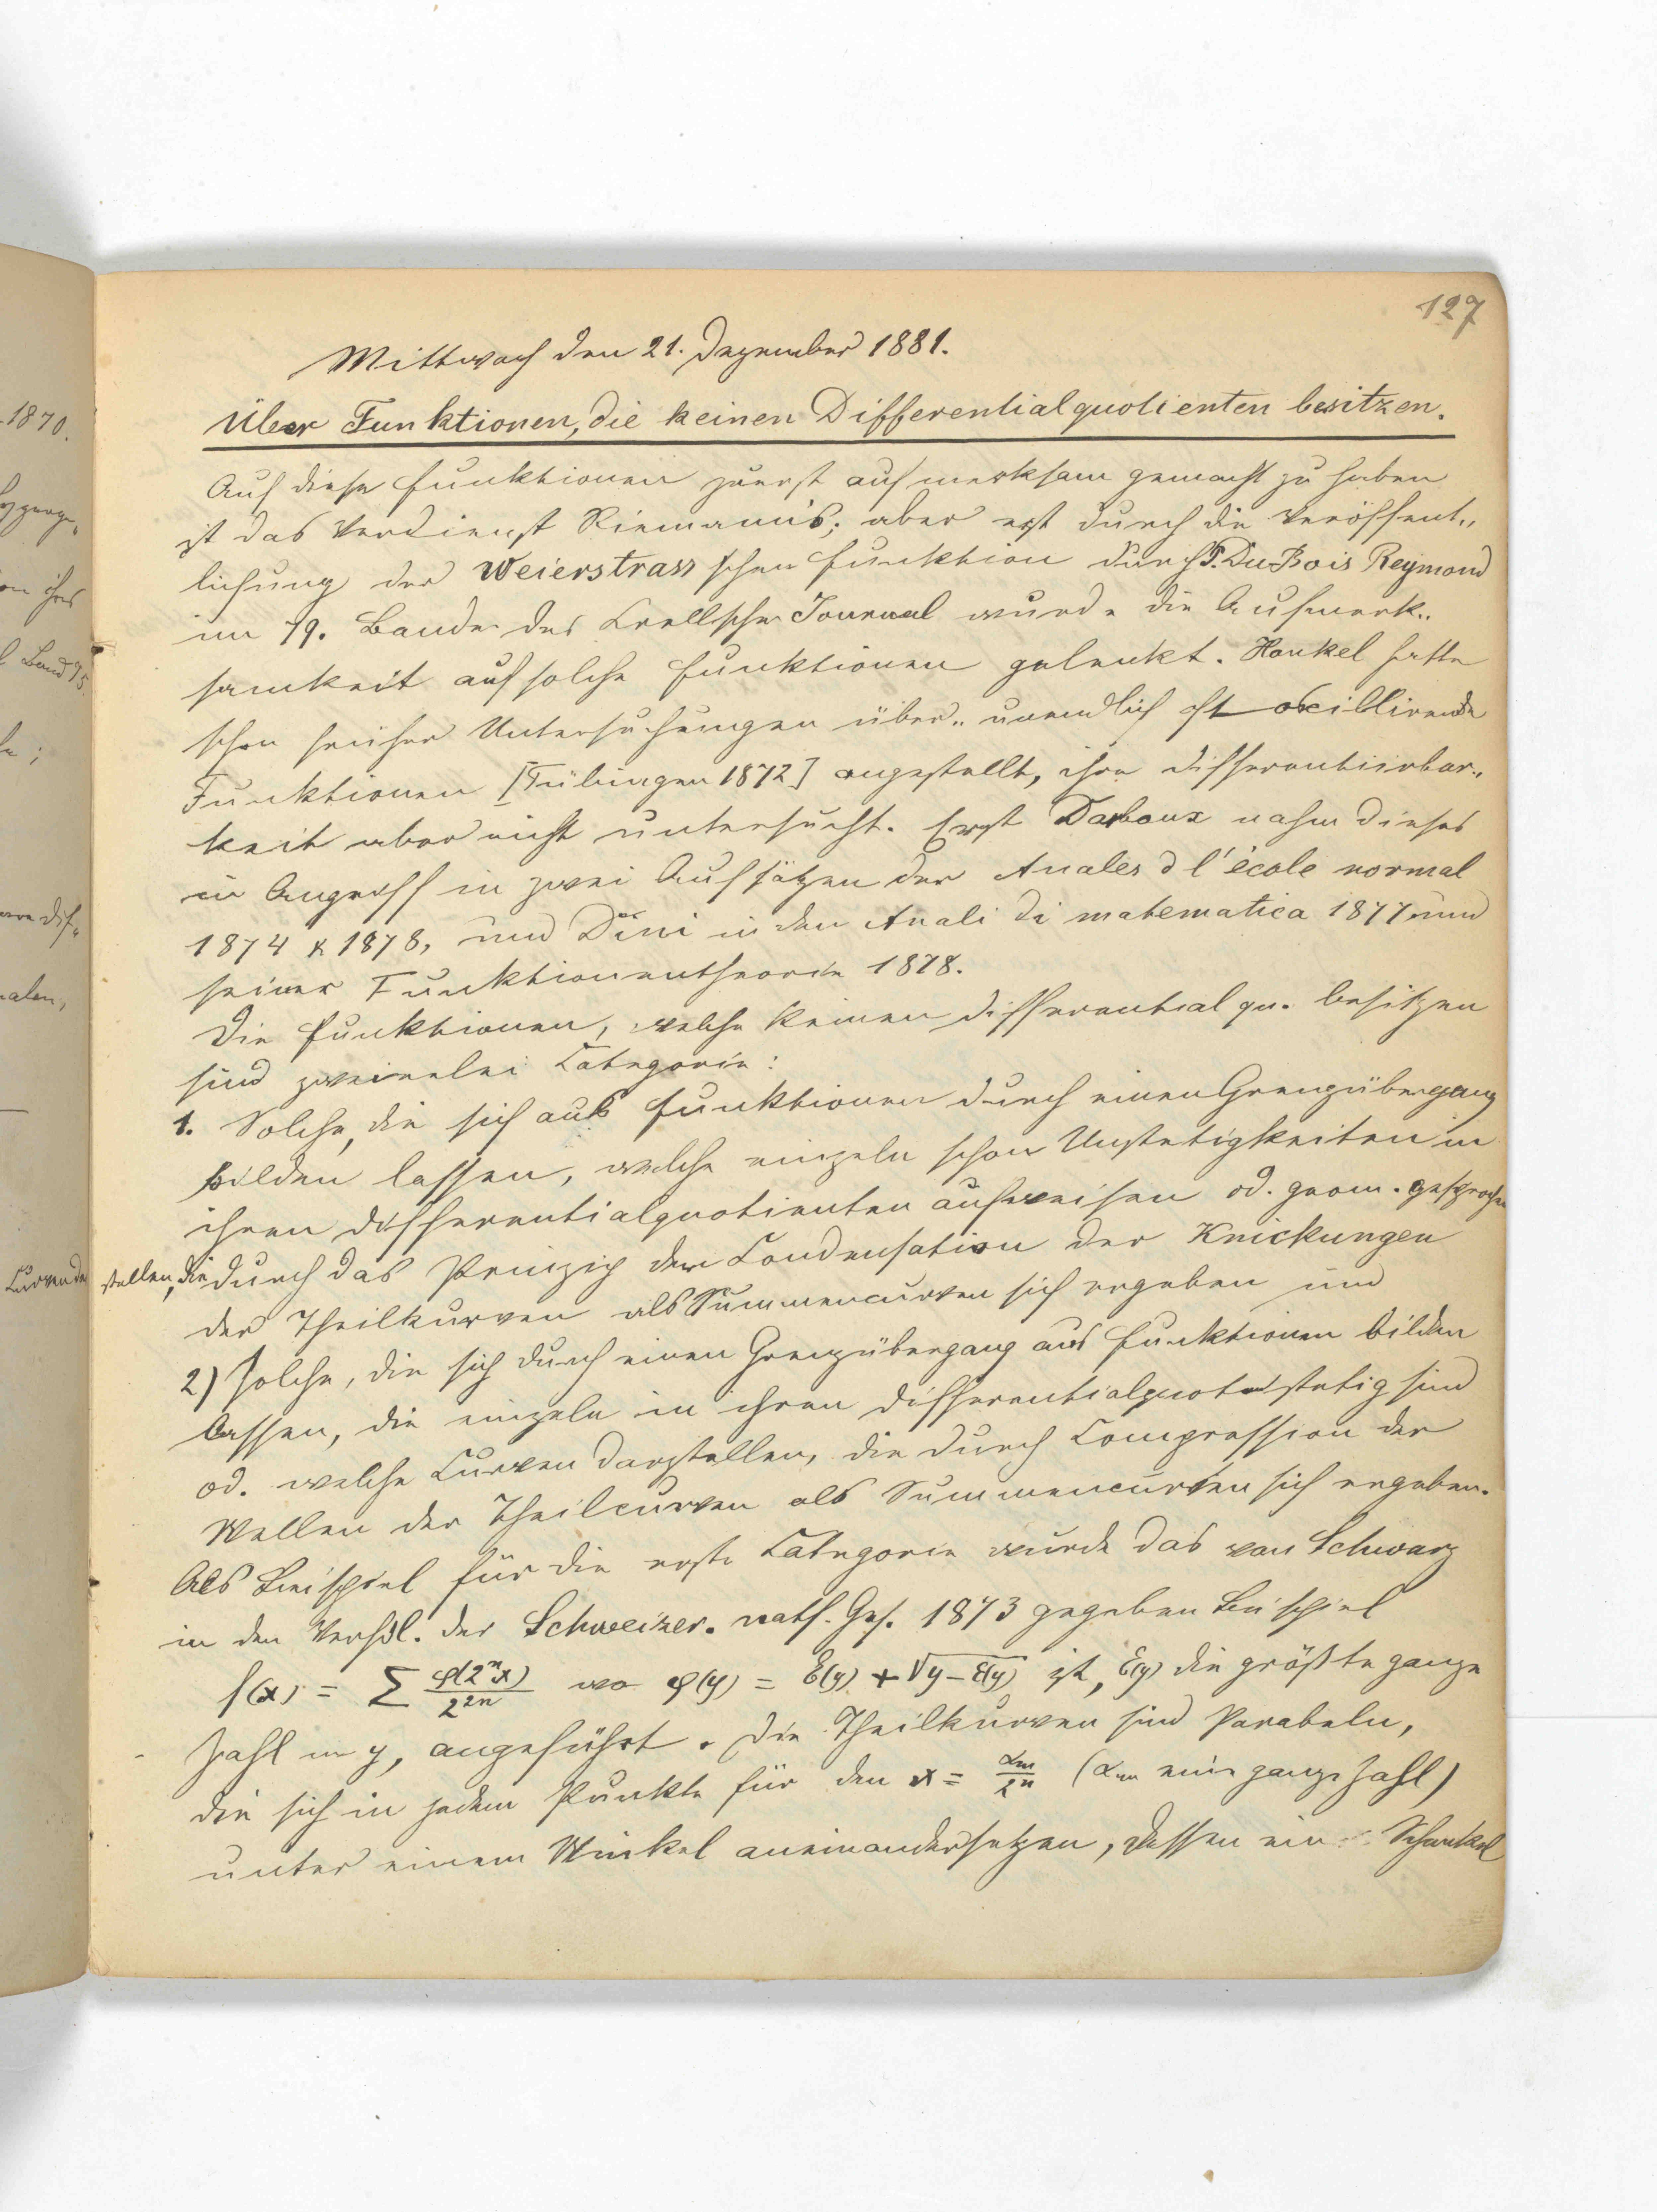 127
Mittwoch den 21. Dezember 1881.
Über Funktionen, die keinen Differentialquotienten besitzen.
Auf diese Funktionen zuerst aufmerksam gemacht zu haben
ist das Verdienst Riemanns; aber erst durch die Veröffent„
lichung der Weierstrass'schen Funktion durch P. DuBois Reymond
im 79. Bande des Crellschen Journal wurde die Aufmerk„
samkeit auf solche Funktionen gelenkt. Hankel hatte
schon früher Untersuchungen über „unendlich oft oscillirende
Funktionen [Tübingen 1872] angestellt, ihre Differentiirbar„
keit aber nicht untersucht. Erst Darboux nahm dieses
in Angriff in zwei Aufsätzen der Anales d l'école normal
1874 & 1878, und Dini in den Anali di matematica 1877 und
seiner Funktionentheorie 1878.
Die Funktionen, welche keinen Differentialqu. besitzen
sind zweierlei Categorie:
1. Solche, die sich aus Funktionen durch einen Grenzübergang
bilden lassen, welche einzeln schon Unstetigkeiten in
ihren Differentialquotienten aufweisen od. geom. gesprochen
Curven dar stellen, die durch das Prinzip der Condensation der Knickungen
der Theilkurven als Summencurven sich ergeben und
2) solche, die sich durch einen Grenzübergang aus Funktionen bilden
lassen, die einzeln in ihren Differentialquot. stetig sind
od. welche Curven darstellen, die durch Compression der
Wellen der Theilcurven als Summencurven sich ergeben.
Als Beispiel für die erste Categorie wurde das von Schwarz
in den Verhdl. der Schweizer. natf. Ges. 1873 gegeben Beispiel
f(x) = Σ φ(2ⁿx)/2²ⁿ wo φ(y) = E(y) + √y−E(y) ist, E(y) die größte ganze
Zahl in y, angeführt. Die Theilkurven sind Parabeln,
die sich in jedem Punkte für den x = αm/2ⁿ (αm eine ganze Zahl)
unter einem Winkel aneinandersetzen, dessen ein Schenkel
1870.
Band 75.